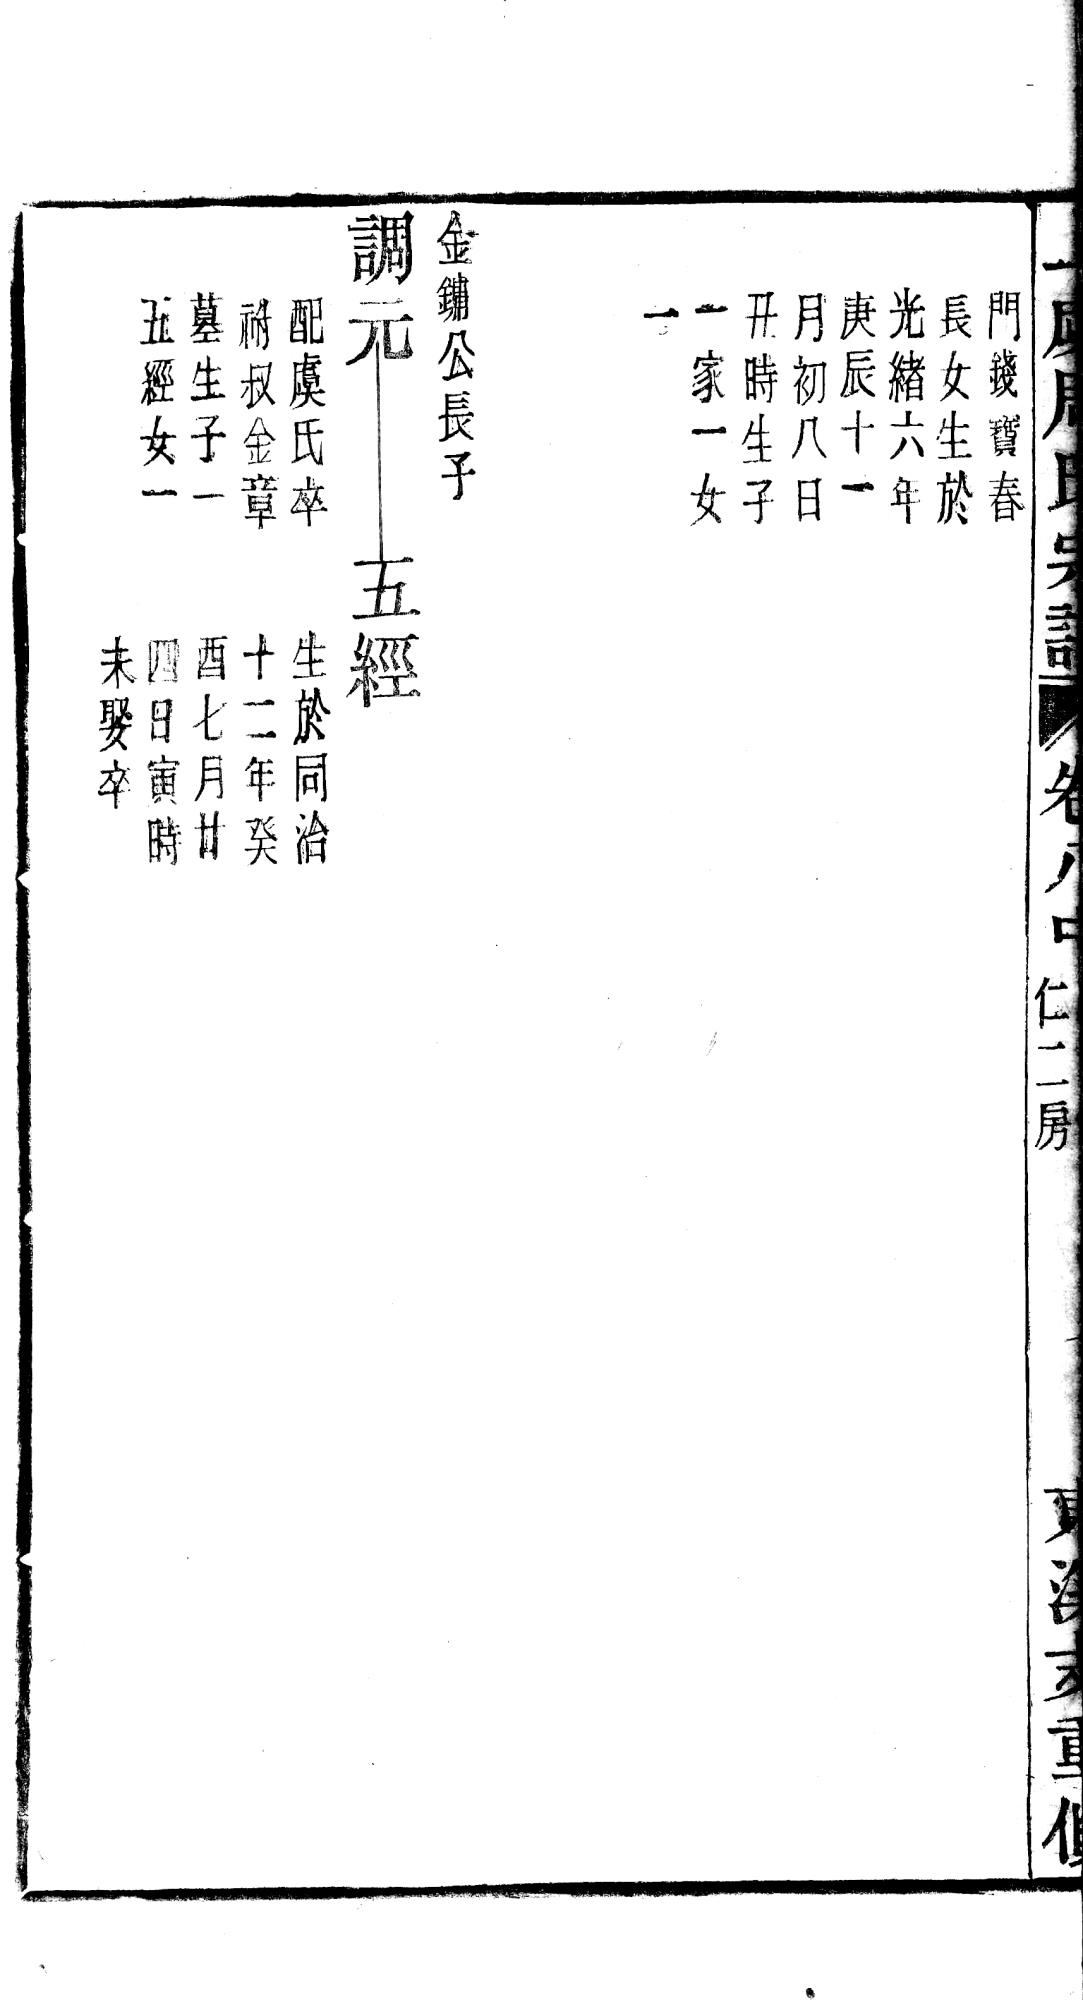 卷八中
仁二房
重修
門錢寶春
長女生於
光緒六年
庚辰十一
月初八日
丑時生子
一家一女
一
金鏽公長子
調元
配虞氏卒
祔叔金章
墓生子一
五經女一
五經
生於同治
十二年癸
酉七月廿
四日寅時
未娶卒